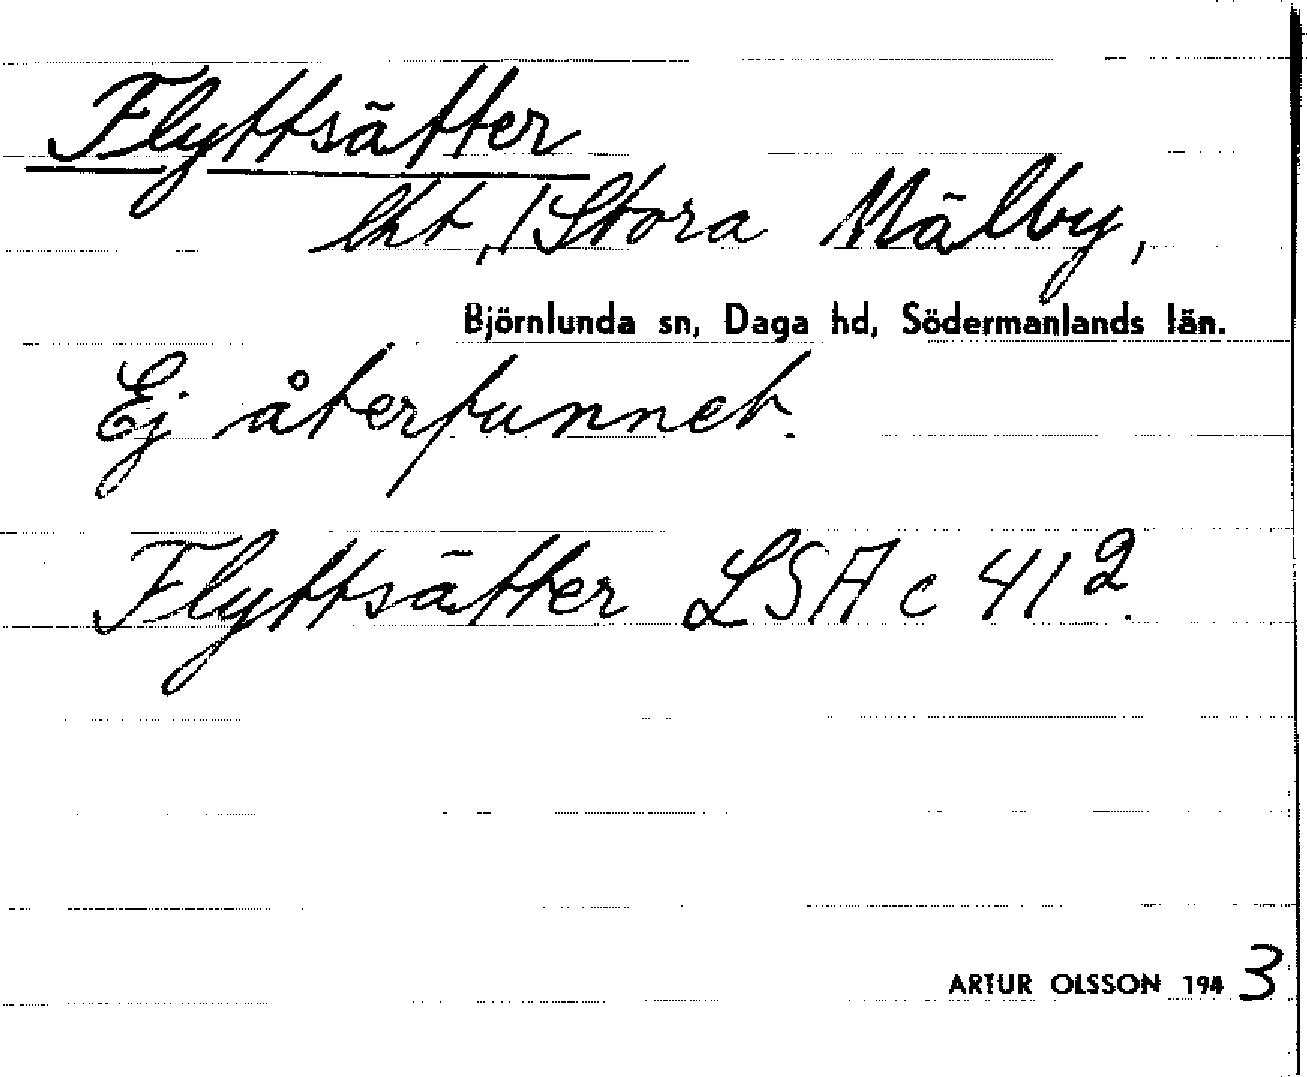 Flyttsätter
lht, /Stora Mälby,
Björnlunda sn, Daga hd, Södermanlands län.
Ej återfunnet.
Flyttsätter LSA c 41 2.
ARTUR OLSSON 194 3